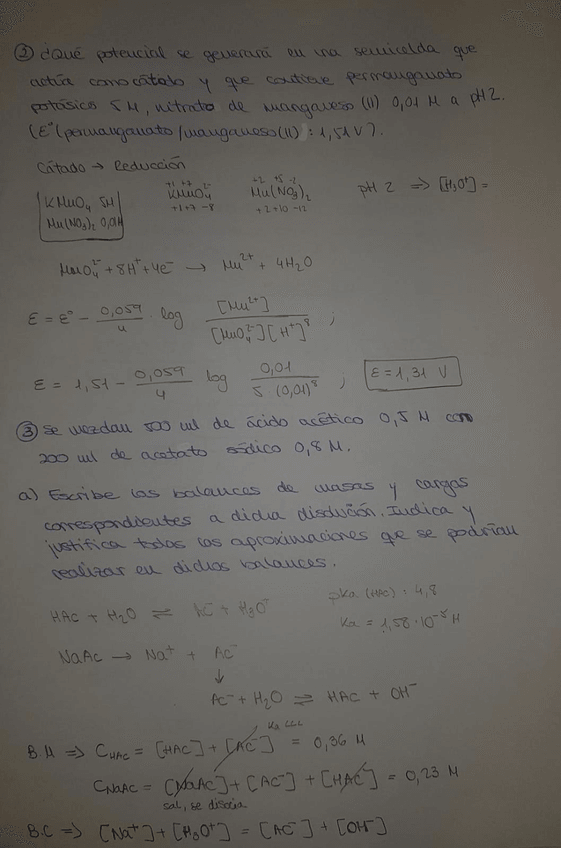 ② ¿Qué potencial se generará en una semicelda que
actúa como cátodo y que contiene permanganato
potásico 5 M, nitrato de manganeso (II) 0,01 M a pH 2.
(E° (permanganato/manganeso (II) : 1,51 V).
Cátodo → Reducción
KMnO₄ 5M
Mn(NO₃)₂ 0,01M
+1 +7 2-
KMnO₄
+1 +7 -8
+2 +5 -2
Mn(NO₃)₂
+2 +10 -12
pH 2 ⇒ [H₃O⁺] =
MnO₄²⁻ + 8H⁺ + 4e⁻ → Mn²⁺ + 4H₂O
ε = ε° - 0,059/4 · log [Mn²⁺]/[MnO₄²⁻][H⁺]⁸ ;
ε = 1,51 - 0,059/4 log 0,01/5 · (0,01)⁸ ; ε = 1,31 V
③ Se mezclan 500 ml de ácido acético 0,5 M con
200 ml de acetato sódico 0,8 M.
a) Escribe los balances de masas y cargas
correspondientes a dicha disolución. Indica y
justifica todas las aproximaciones que se podrían
realizar en dichos balances.
HAc + H₂O ⇌ Ac⁻ + H₃O⁺
pKa (HAc) : 4,8
Ka = 1,58·10⁻⁵ M
NaAc → Na⁺ + Ac⁻
↓
Ac⁻ + H₂O ⇌ HAc + OH⁻
Ka <<<
B.M ⇒ C_HAc = [HAc] + [Ac⁻] = 0,36 M
C_NaAc = [NaAc] + [Ac⁻] + [HAc] = 0,23 M
sal, se disocia
B.C ⇒ [Na⁺] + [H₃O⁺] = [Ac⁻] + [OH⁻]